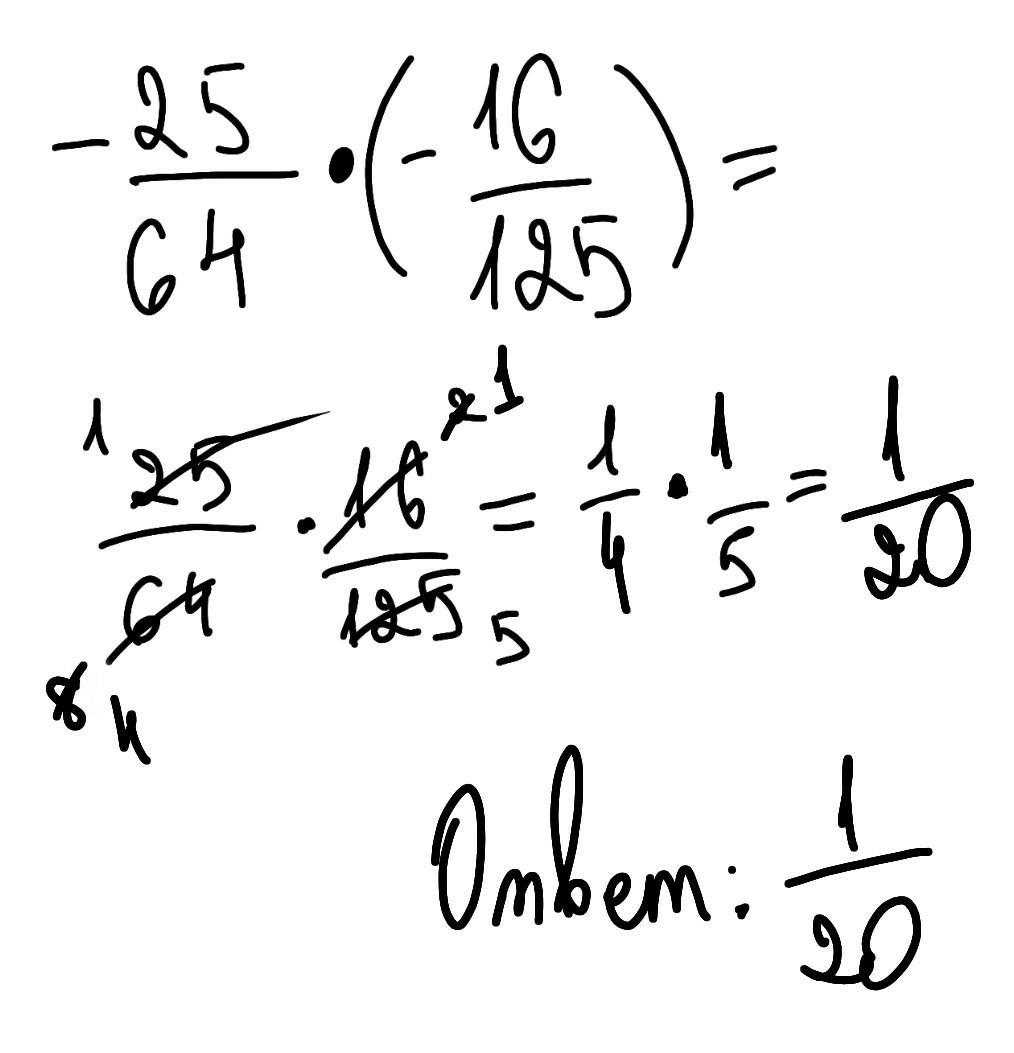 -25/64 • (-16/125) =
1 25/64 8 4 · 16/125 2 1 5 = 1/4 · 1/5 = 1/20
Ответ: 1/20